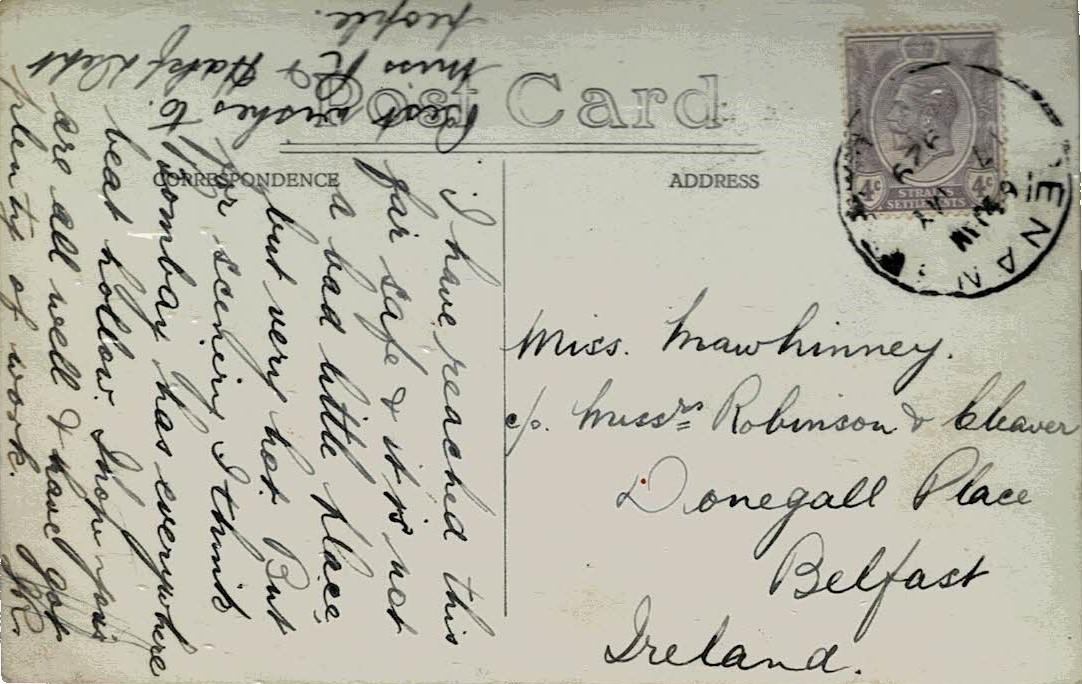 Post Card
CORRESPONDENCE
ADDRESS
STRAITS
SETTLEMENTS
4c
4c
PENAN
I have reached this
far safe & it is not
a bad little place,
but very hot. But
for scenery I think
Bombay has everywhere
beat hollow. I hope you
are all well & have got
plenty of work.
Best wishes to
Miss K & Hakf Dept
people.
Miss. Mawhinney.
c/o. Messrs Robinson & Cleaver
Donegall Place
Belfast
Ireland.